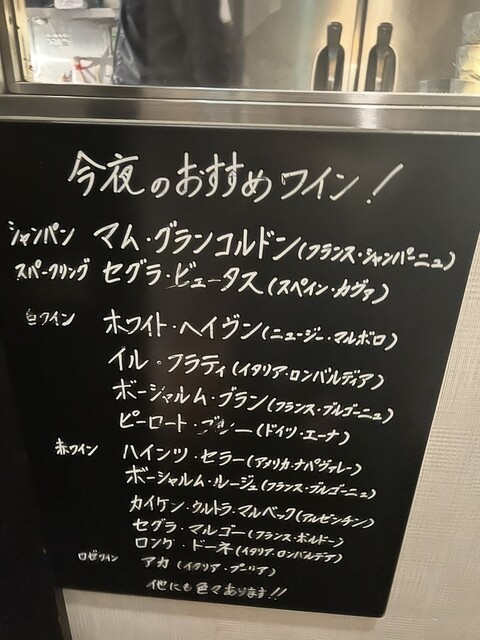 今夜のおすすめワイン!
シャンパン マム・グランコルドン(フランス・シャンパーニュ)
スパークリング セグラ・ビュータス(スペイン・カヴァ)
白ワイン ホワイト・ヘイヴン(ニュージー・マルボロ)
イル・フラティ(イタリア・ロンバルディア)
ボーシャルム・グラン(フランス・ブルゴーニュ)
ピーロート・ブルー(ドイツ・ナーエ)
赤ワイン ハインツ・セラー(アメリカ・ナパヴァレー)
ボーシャルム・ルージュ(フランス・ブルゴーニュ)
カイケン・ウルトラ・マルベック(アルゼンチン)
セグラ・マルゴー(フランス・ボルドー)
ロング・ドーネ(イタリア・ロンバルデア)
ロゼワイン アカ(イタリア・プーリア)
他にも色々あります!!